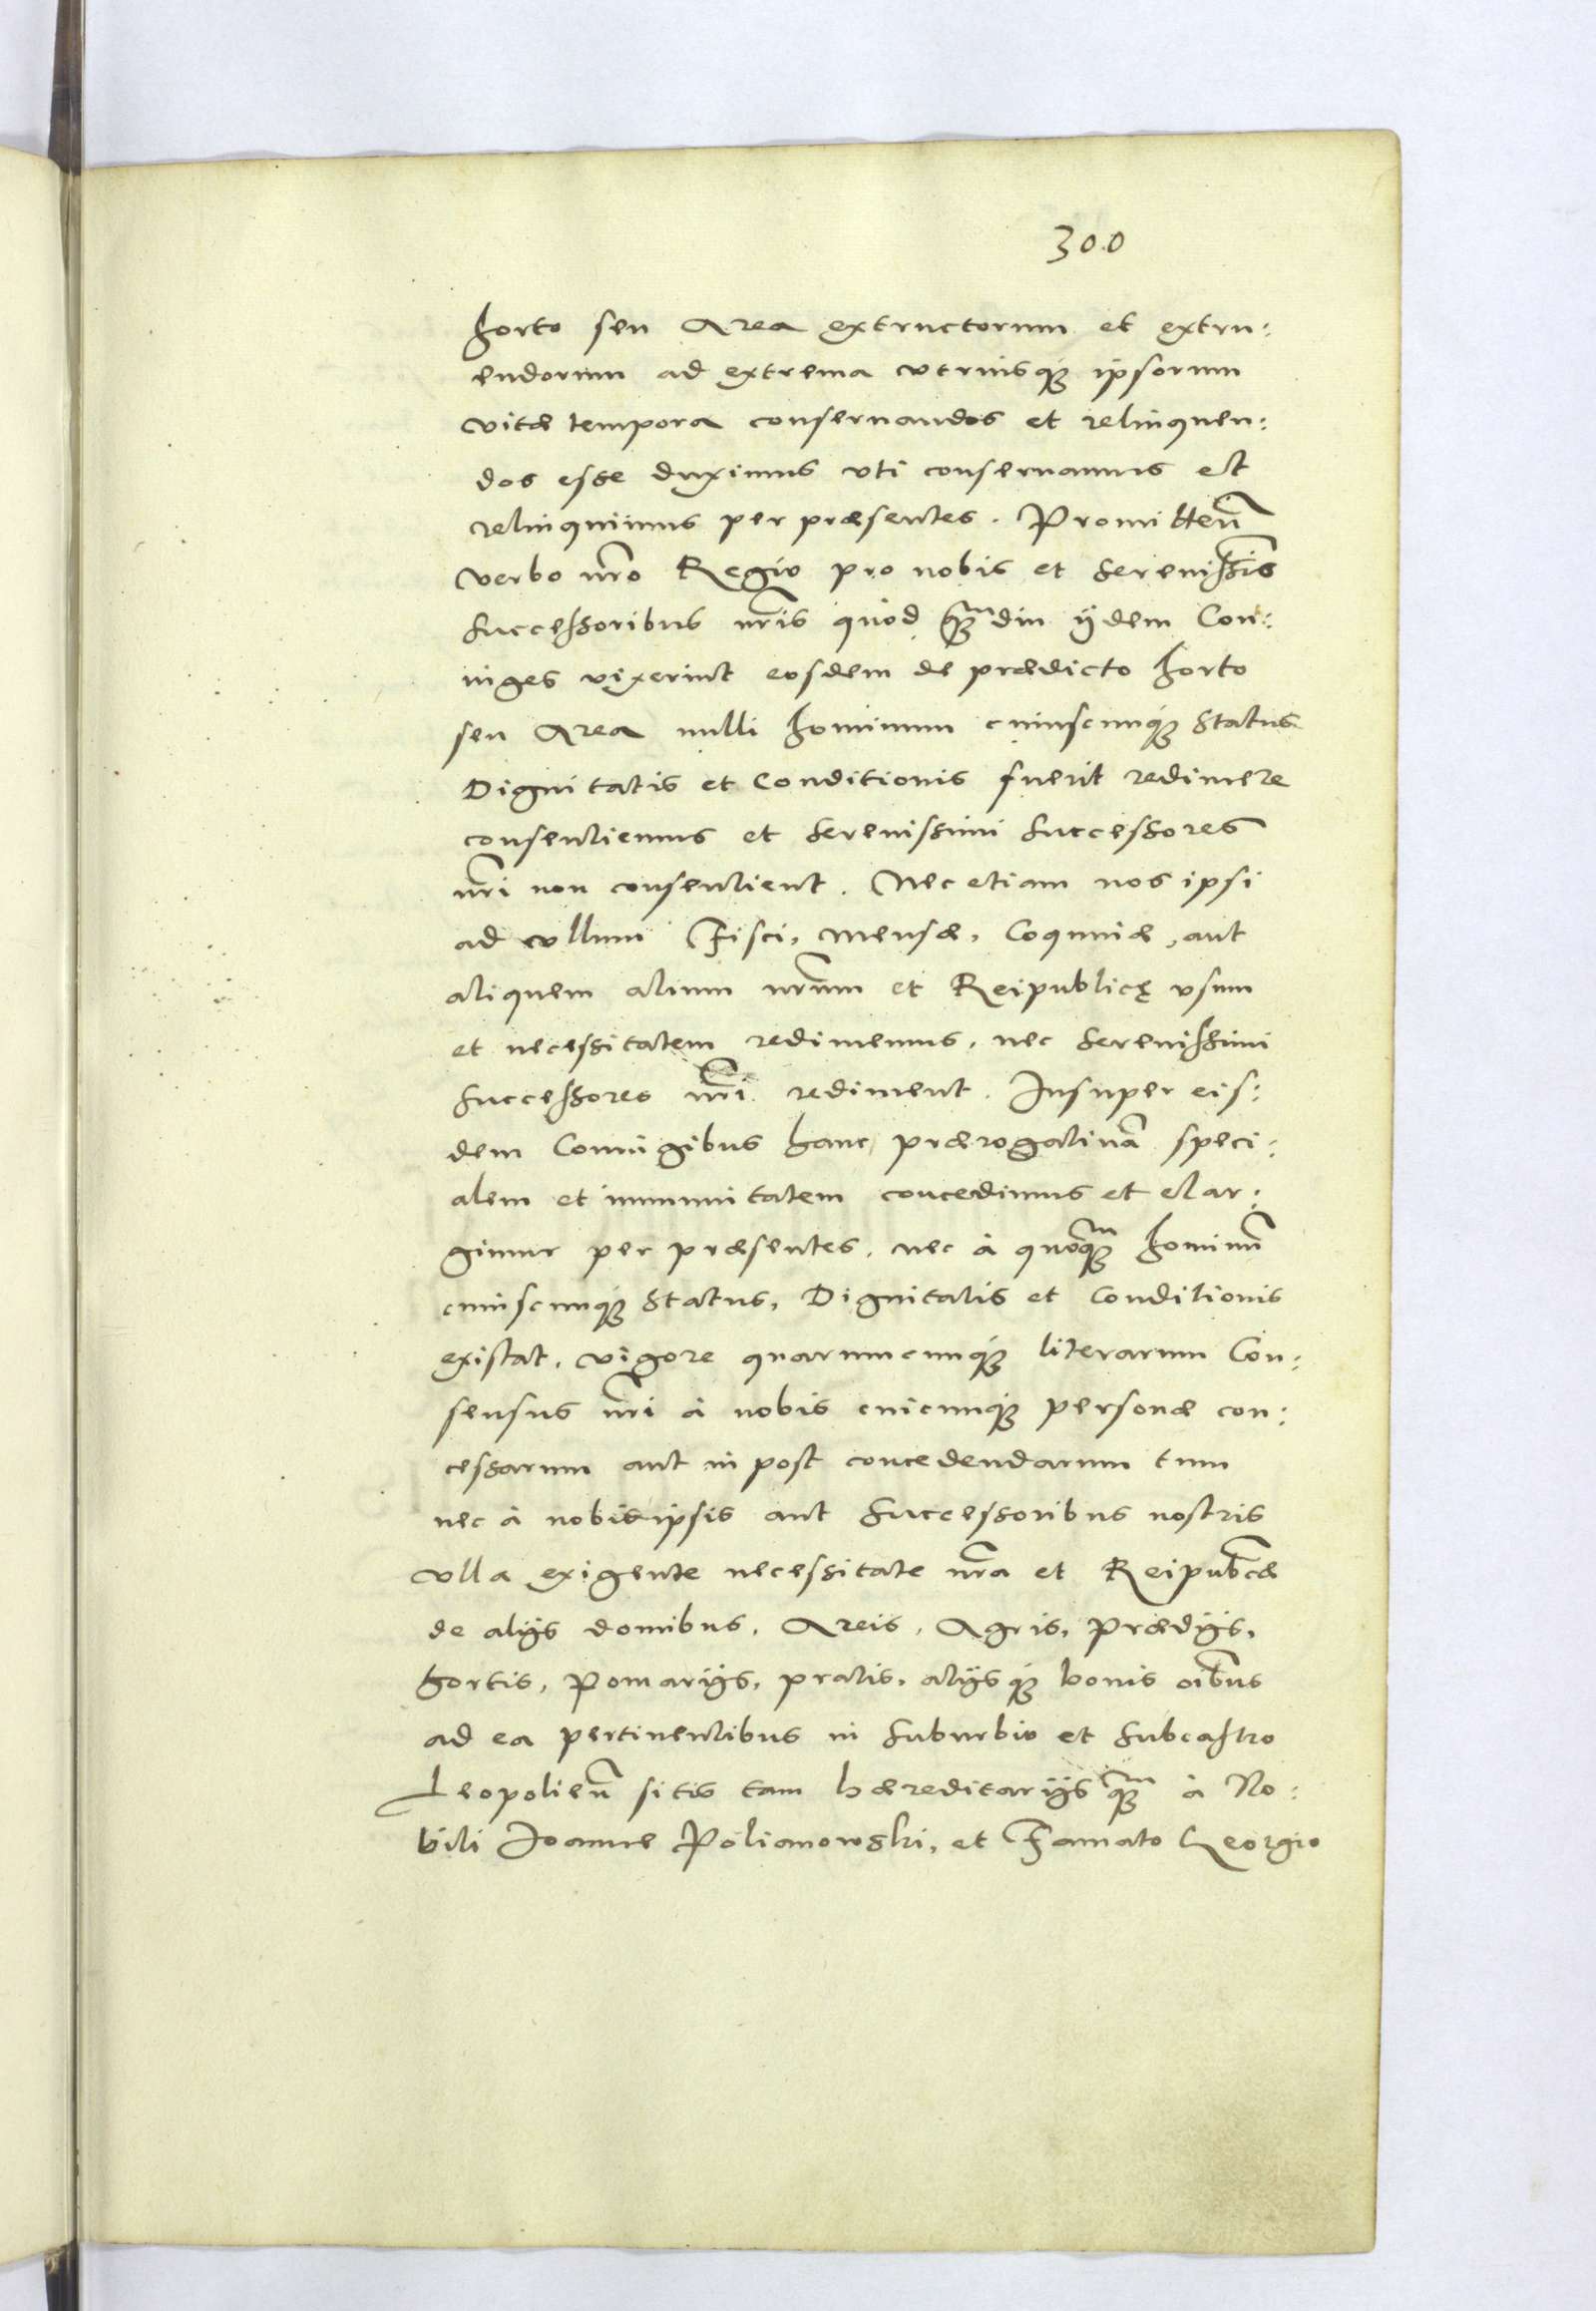 300
horto seu Area extructorum et extru:
endorum ad extrema vtriusq; ipsorum
vitæ tempora conseruandos et relinquen:
dos esse duximus vti conseruamus et
relinquimus per præsentes. Promitteñ
verbo nr̃o Regio pro nobis et Sereniss̃is
Successoribus nr̃is quòd q̃mdiu ijdem Con:
iuges vixerint eosdem de prædicto horto
seu Area nulli hominum cuiuscunq; Status
Dignitatis et Conditionis fuerit redimere
consentiemus et Serenissimi Successores
nr̃i non consentient. Nec etiam nos ipsi
ad vllum Fisci, mensæ, Coquinæ, aut
aliquem alium nr̃um et Reipublicę vsum
et necessitatem redimemus, nec Serenissimi
Successores nr̃i rediment. Insuper eis:
dem Coniugibus hanc prærogatiuã speci:
alem et immunitatem concedimus et elar:
gimur per præsentes, nec à quoq̃m hominũ
cuiuscunq; Status, Dignitatis et Conditionis
existat, vigore quarumcunq; literarum Con:
sensus nr̃i à nobis cuicunq; personæ con:
cessarum aut in post concedendarum tum
nec à nobis ipsis aut Successoribus nostris
vlla exigente necessitate nr̃a et Reipub̃cæ
de alijs domibus, Areis, Agris, Prædijs,
hortis, Pomarijs, pratis, alijsq; bonis oĩbus
ad ea pertinentibus in Suburbio et Subcastro
Leopolieñ sitis tam hæreditarijs q̃m à No:
bili Joanne Polianowski, et Famato Georgio